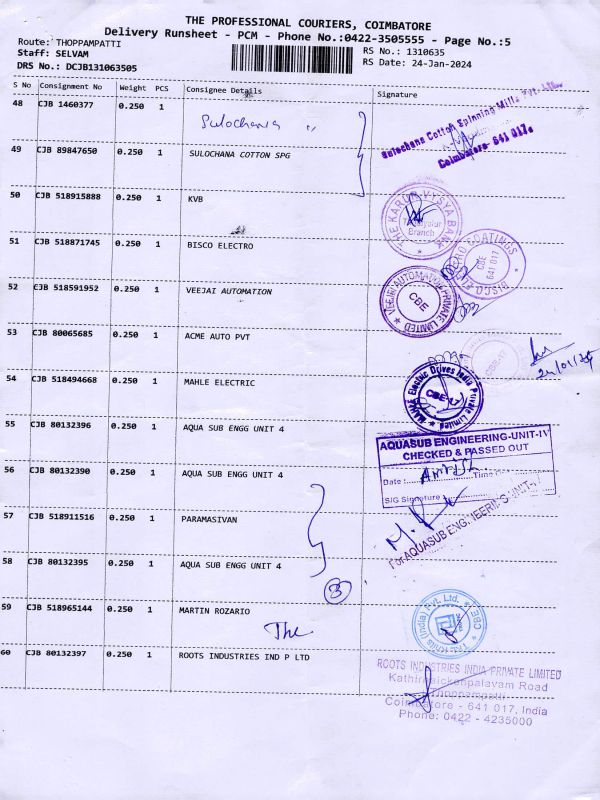 THE PROFESSIONAL COURIERS, COIMBATORE
Delivery Runsheet - PCM - Phone No.:0422-3505555 - Page No.:5
Route: THOPPAMPATTI
Staff: SELVAM
DRS No.: DCJB131063505
RS No.: 1310635
RS Date: 24-Jan-2024
S No Consignment No Weight PCS Consignee Details Signature
48 CJB 1460377 0.250 1
Sulochana "
Sulochana Cotton Spinning Mills Pvt. Ltd.
Coimbatore- 641 017.
49 CJB 89847650 0.250 1 SULOCHANA COTTON SPG
50 CJB 518915888 0.250 1 KVB
THE KARUR VYSYA BANK
Branch
51 CJB 518871745 0.250 1 BISCO ELECTRO
COATINGS
CBE
641 017
52 CJB 518591952 0.250 1 VEEJAI AUTOMATION
VEEJAI AUTOMATION PRIVATE LIMITED
CBE
53 CJB 80065685 0.250 1 ACME AUTO PVT
24/01/24
54 CJB 518494668 0.250 1 MAHLE ELECTRIC
MAHLE Electric Drives India Private Limited
CBE-17
55 CJB 80132396 0.250 1 AQUA SUB ENGG UNIT 4
AQUASUB ENGINEERING-UNIT-IV
CHECKED & PASSED OUT
Date : Time
SIG Signature :
56 CJB 80132390 0.250 1 AQUA SUB ENGG UNIT 4
57 CJB 518911516 0.250 1 PARAMASIVAN
For AQUASUB ENGINEERING-UNIT-IV
58 CJB 80132391 0.250 1 AQUA SUB ENGG UNIT 4
3
59 CJB 518965144 0.250 1 MARTIN ROZARIO
The
(India) Pvt. Ltd.
CBE
60 CJB 80132397 0.250 1 ROOTS INDUSTRIES IND P LTD
ROOTS INDUSTRIES INDIA PRIVATE LIMITED
Kathirnaickenpalayam Road
Thoppampatti
Coimbatore - 641 017, India
Phone: 0422 - 4235000